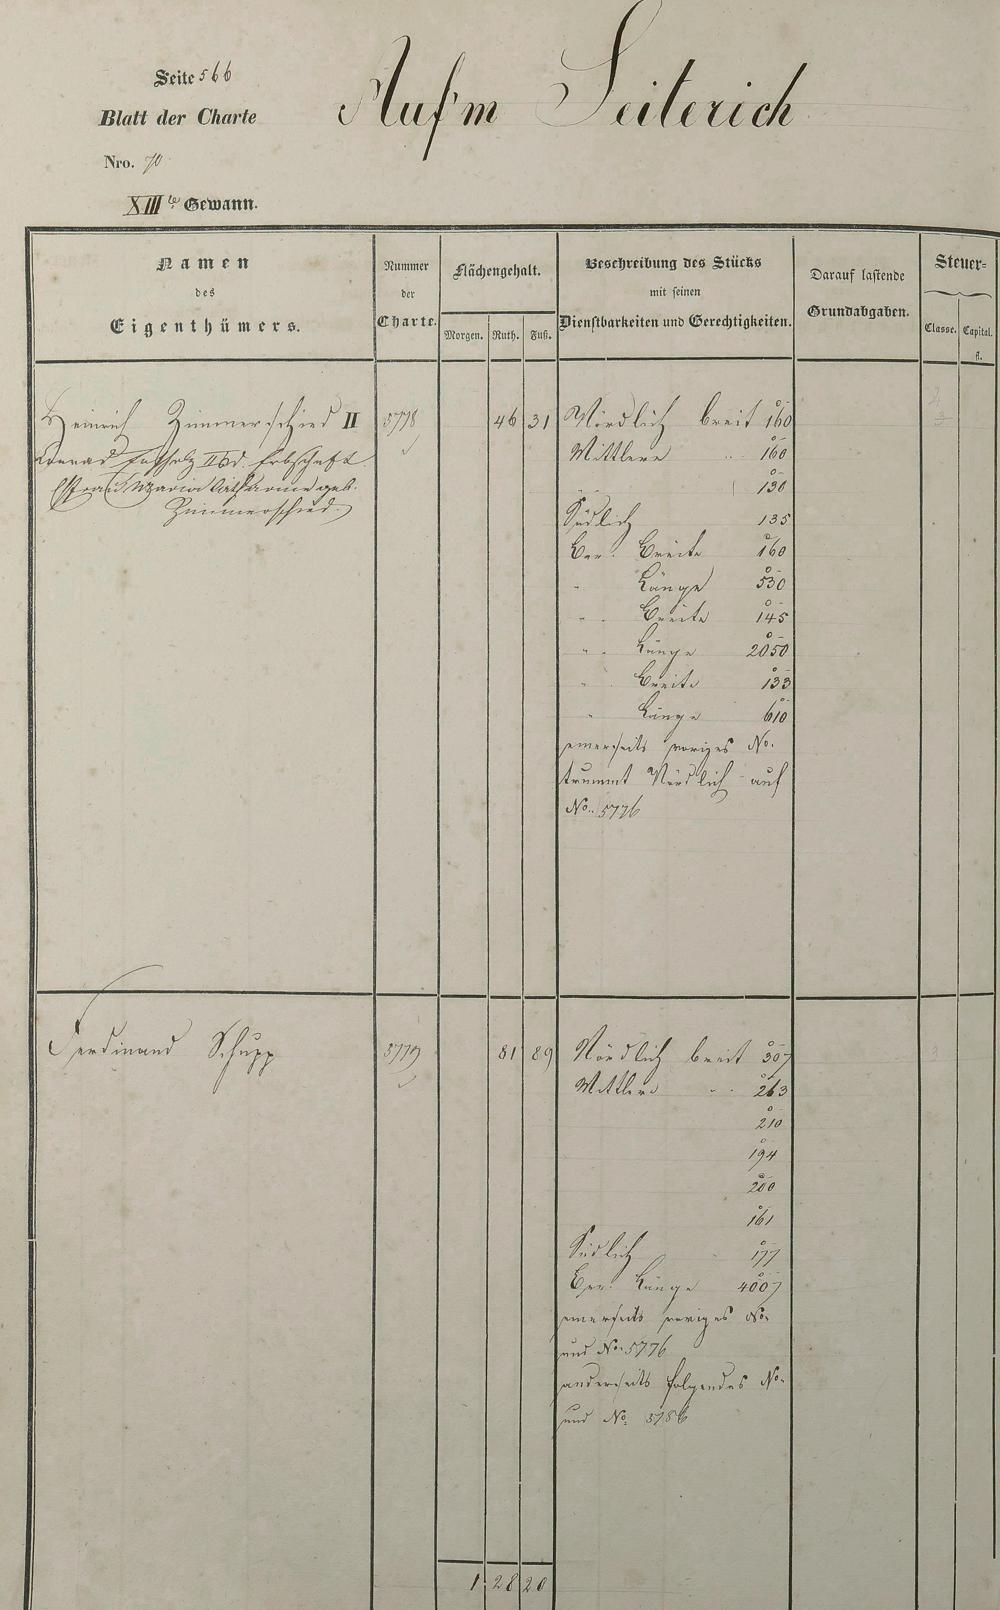 Seite 566
Auf'm Seiterich
Blatt der Charte
Nro. 70
XIII te Gewann.
Namen
des
Eigenthümers.
Nummer
der
Charte.
Flächengehalt.
Morgen. Ruth. Fuß.
Beschreibung des Stücks
mit seinen
Dienstbarkeiten und Gerechtigkeiten.
Darauf lastende
Grundabgaben.
Steuer-
Classe. Capital.
fl.
Heinrich Zimmerschied II 5778 46 31 Nördlich breit 160
Mittlere " 160
Conrad IIt d. Erbschaft
" 130
Ehefrau Maria Catharine geb.
Zimmerschied.
Südlich 135
Ber. Breite 160
" Länge 530
" Breite 145
" Länge 2050
" Breite 133
" Länge 610
einerseits voriges No.
trummt Nördlich auf
No. 5776
Ferdinand Schupp 5779 81 89 Nördlich breit 307
Mittlere " 263
210
194
200
161
Südlich 177
Ber. Länge 4007
einerseits voriges No.
und No. 5776
anderseits folgendes No.
und No. 5786
1 28 20